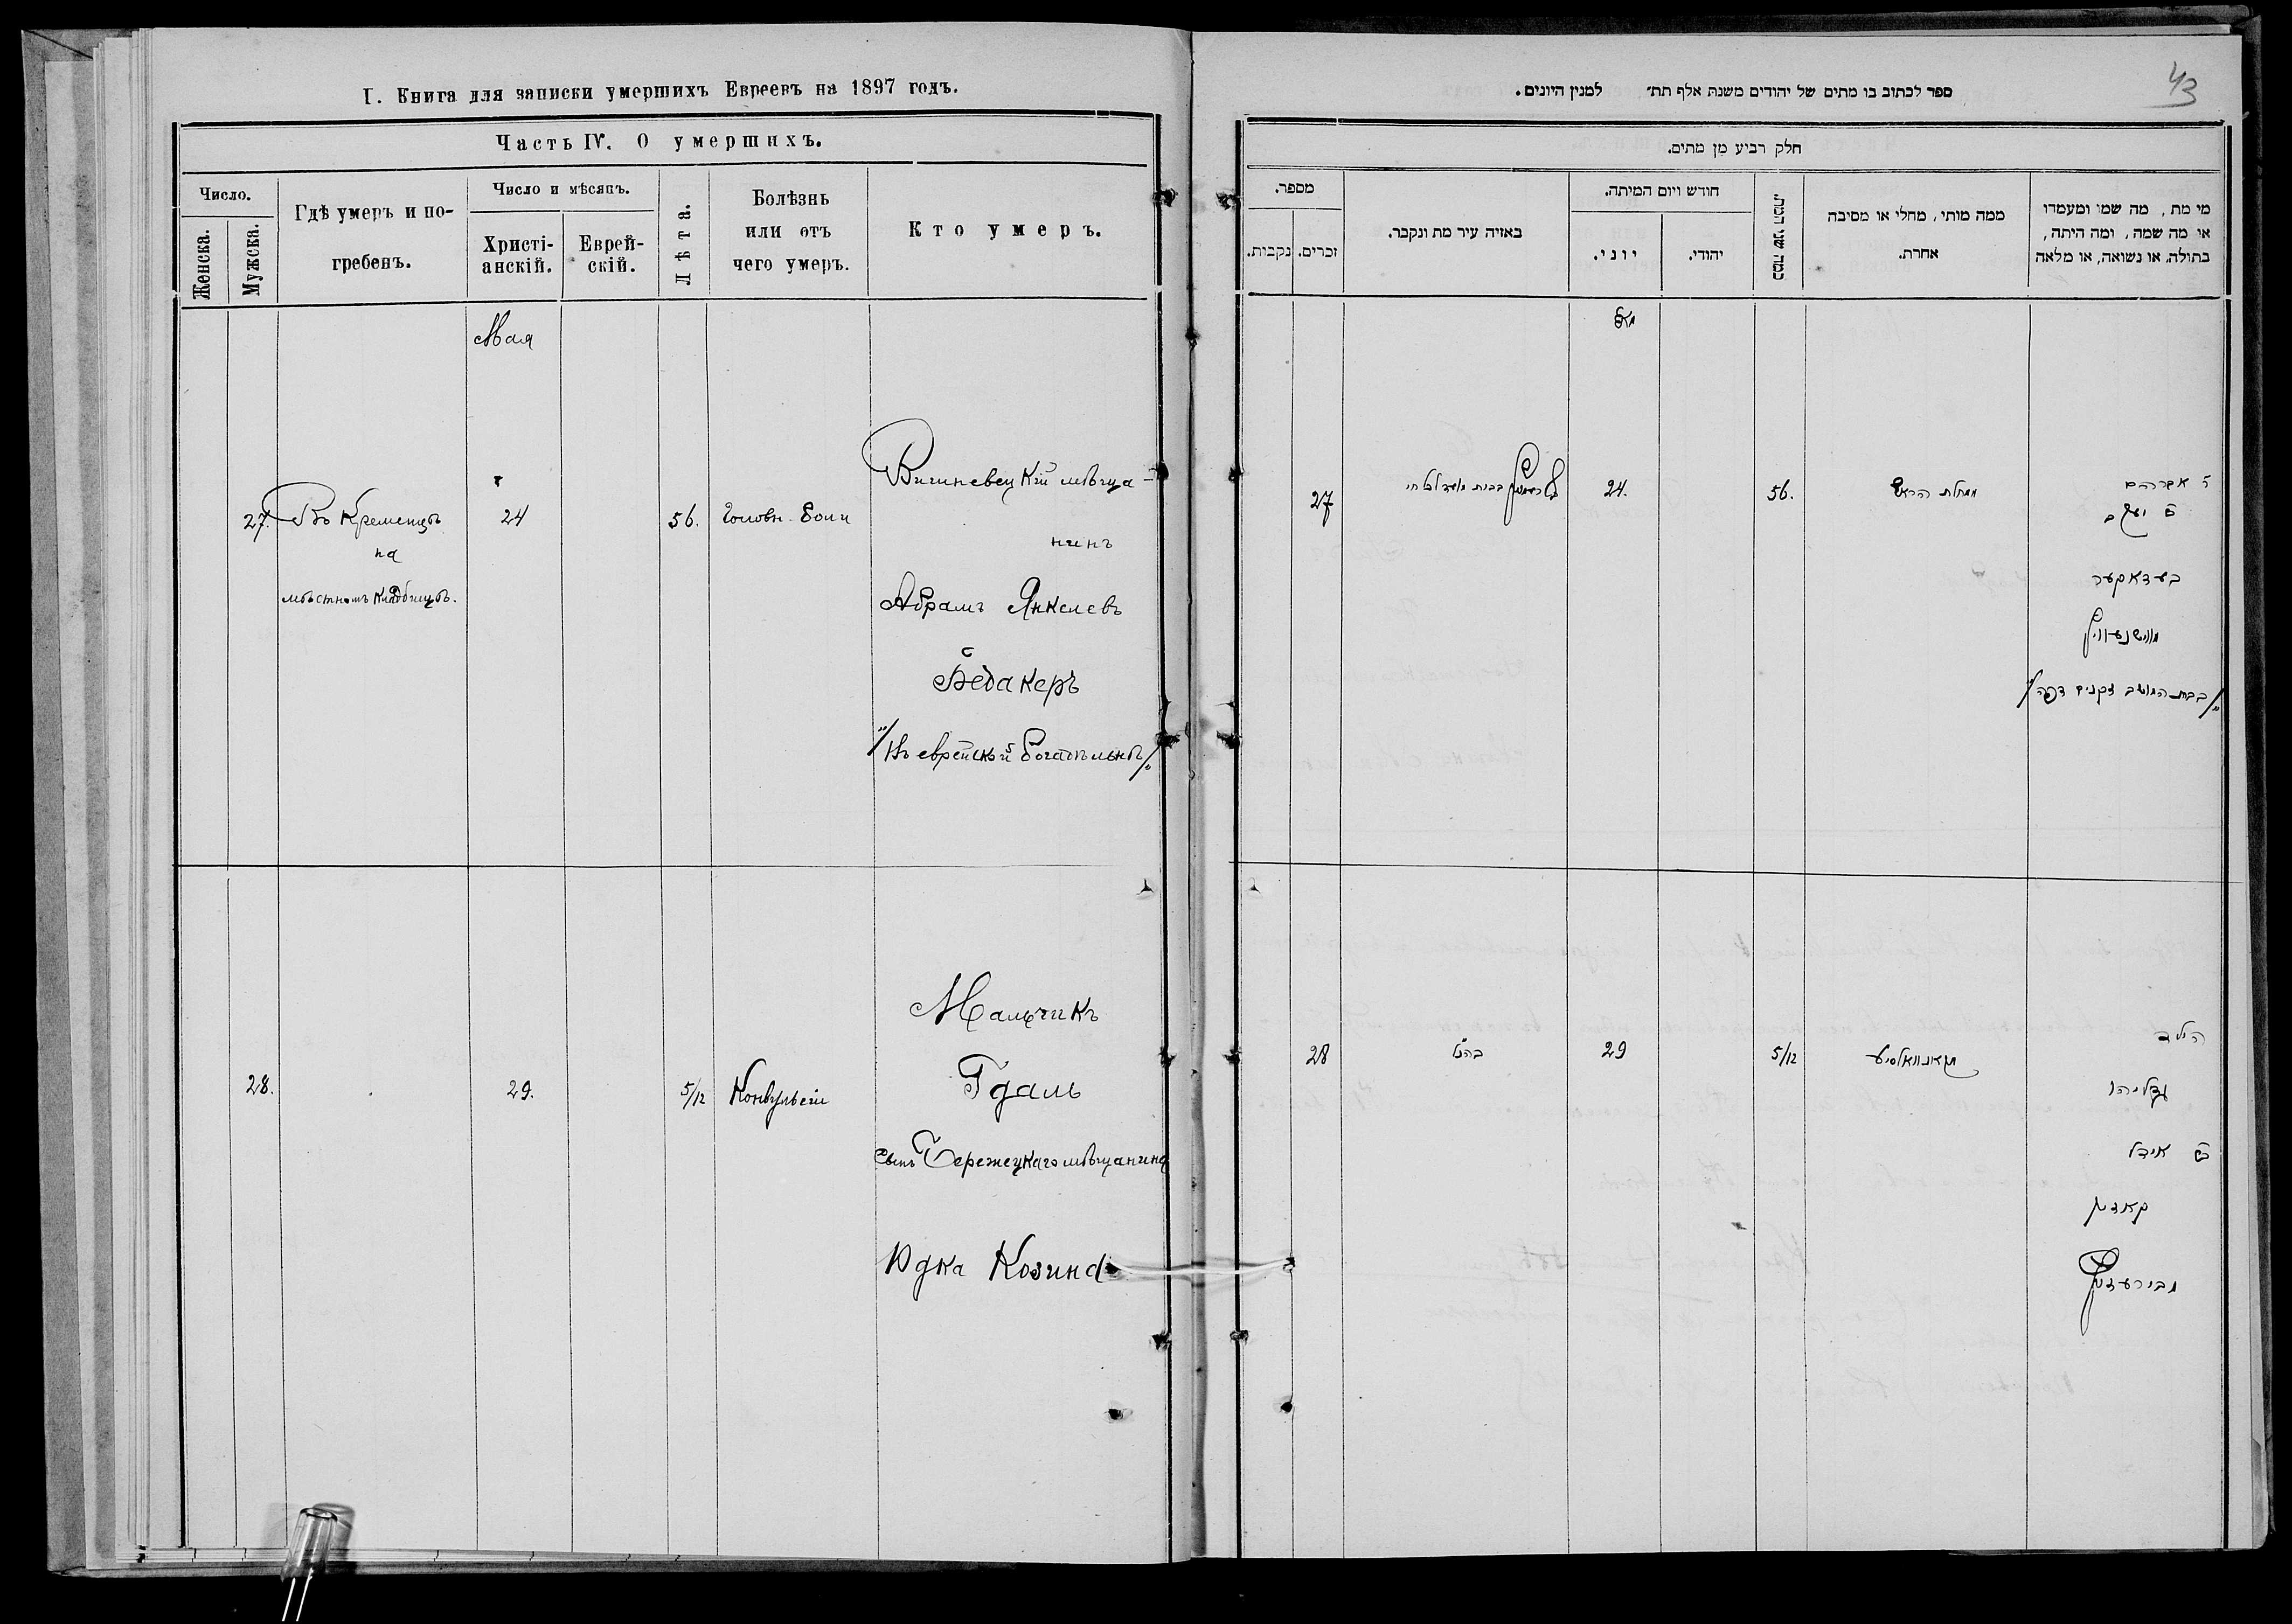 I. Книга для записки умершихъ Евреевъ на 1897 годъ.
Часть IV. О умершихъ.
Число.
Женска.
Мужска.
Гдѣ умеръ и по-
гребенъ.
Число и мѣсяцъ.
Христі-
анскій.
Еврей-
скій.
Лѣта.
Болѣзнь
или отъ
чего умеръ.
Кто умеръ.
Мая
27.
Въ Кременцѣ
на
мѣстномъ кладбищѣ.
24
56.
Головн. боли
Вишневецкій мѣща-
нинъ
Абрамъ Янкелевъ
Бедакеръ
/Въ еврейской богадѣльнѣ/
28.
29.
5/12
Конвульсіи
Мальчикъ
Гдаль
сынъ Бережецкаго мѣщанина
Юдка Козина
43
ספר לכתוב בו מתים של יהודים משנת אלף תת׳ למנין היונים.
חלק רביע מן מתים.
מספר.
נקבות.
זכרים.
באזיה עיר מת ונקבר.
חודש ויום המיתה.
יוני.
יהודי.
כמה שני המת.
ממה מותי, מחלי או מסיבה
אחרת.
מי מת, מה שמו ומעמדו
או מה שמה, ומה היתה,
בתולה, או נשואה, או מלאה
מאי
27
24.
56.
ממחלת הראש
ר אברהם
ב יעקב
בעדאקער
מווישנעוויץ
28
29
5/12
קאנוואלסיע
הילד
גדליהו
ב אידל
קאזין
מבירעזיץ